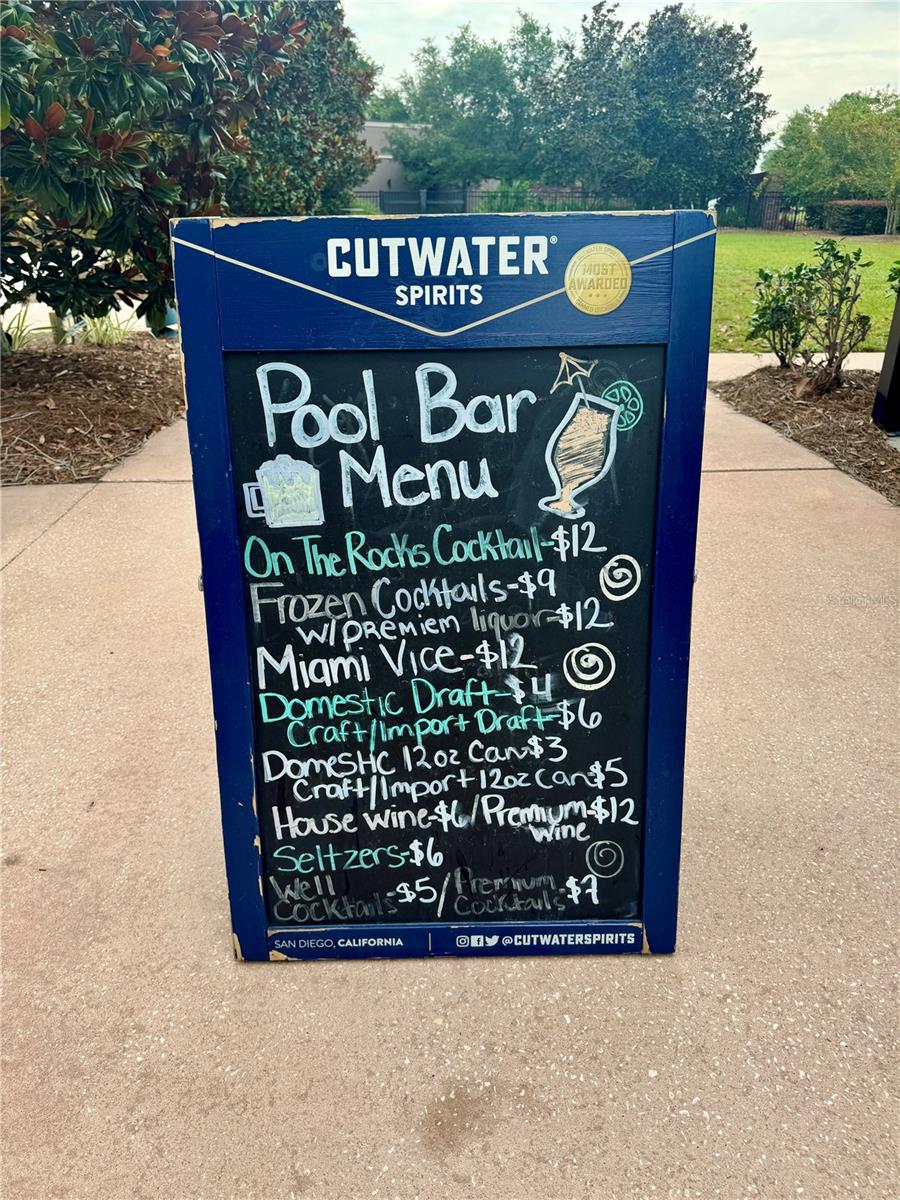 CUTWATER®
SPIRITS
MOST
AWARDED
Pool Bar
Menu
On The Rocks Cocktail-$12
Frozen Cocktails-$9
w/premiem liquor-$12
Miami Vice-$12
Domestic Draft-$4
Craft/Import Draft-$6
Domestic 12oz Can-$3
Craft/Import 12oz Can-$5
House wine-$6/Premium-$12
wine
Seltzers-$6
Well
Cocktails-$5/Premium
Cocktails-$7
SAN DIEGO, CALIFORNIA | @CUTWATERSPIRITS